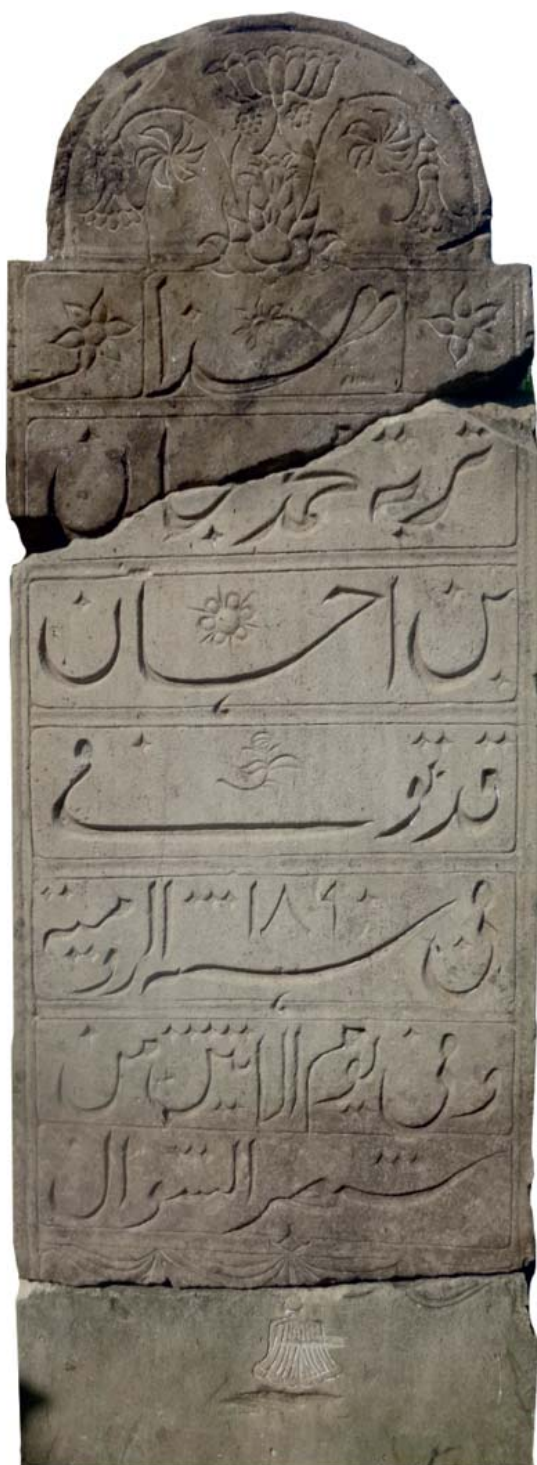 هذا
تربة حمزه بان
بن احسان
قد توفى
فى سنه ١٨٤٠ الرومية
وفى يوم الاثنين من
شهر الشوال